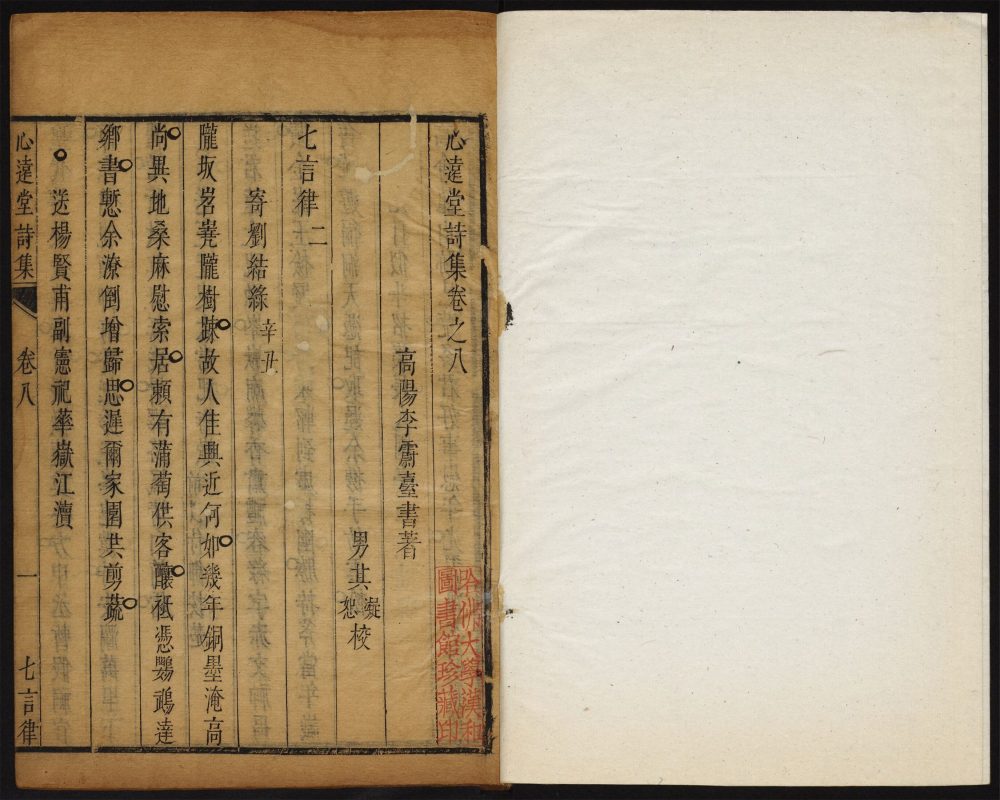 心遠堂詩集卷之八
高陽李霨臺書著
男其凝恕校
七言律二
寄劉結綠辛丑
隴坂岧嶤隴樹踈故人佳興近何如幾年銅墨淹高
尚異地桑麻慰索居頼有蒲萄供客釀祗憑鸚鵡達
鄉書慙余潦倒增歸思遲爾家園共剪蔬
送楊賢甫副憲祀華嶽江瀆
心遠堂詩集 卷八 一 七言律
哈佛大學漢和
圖書館珍藏印